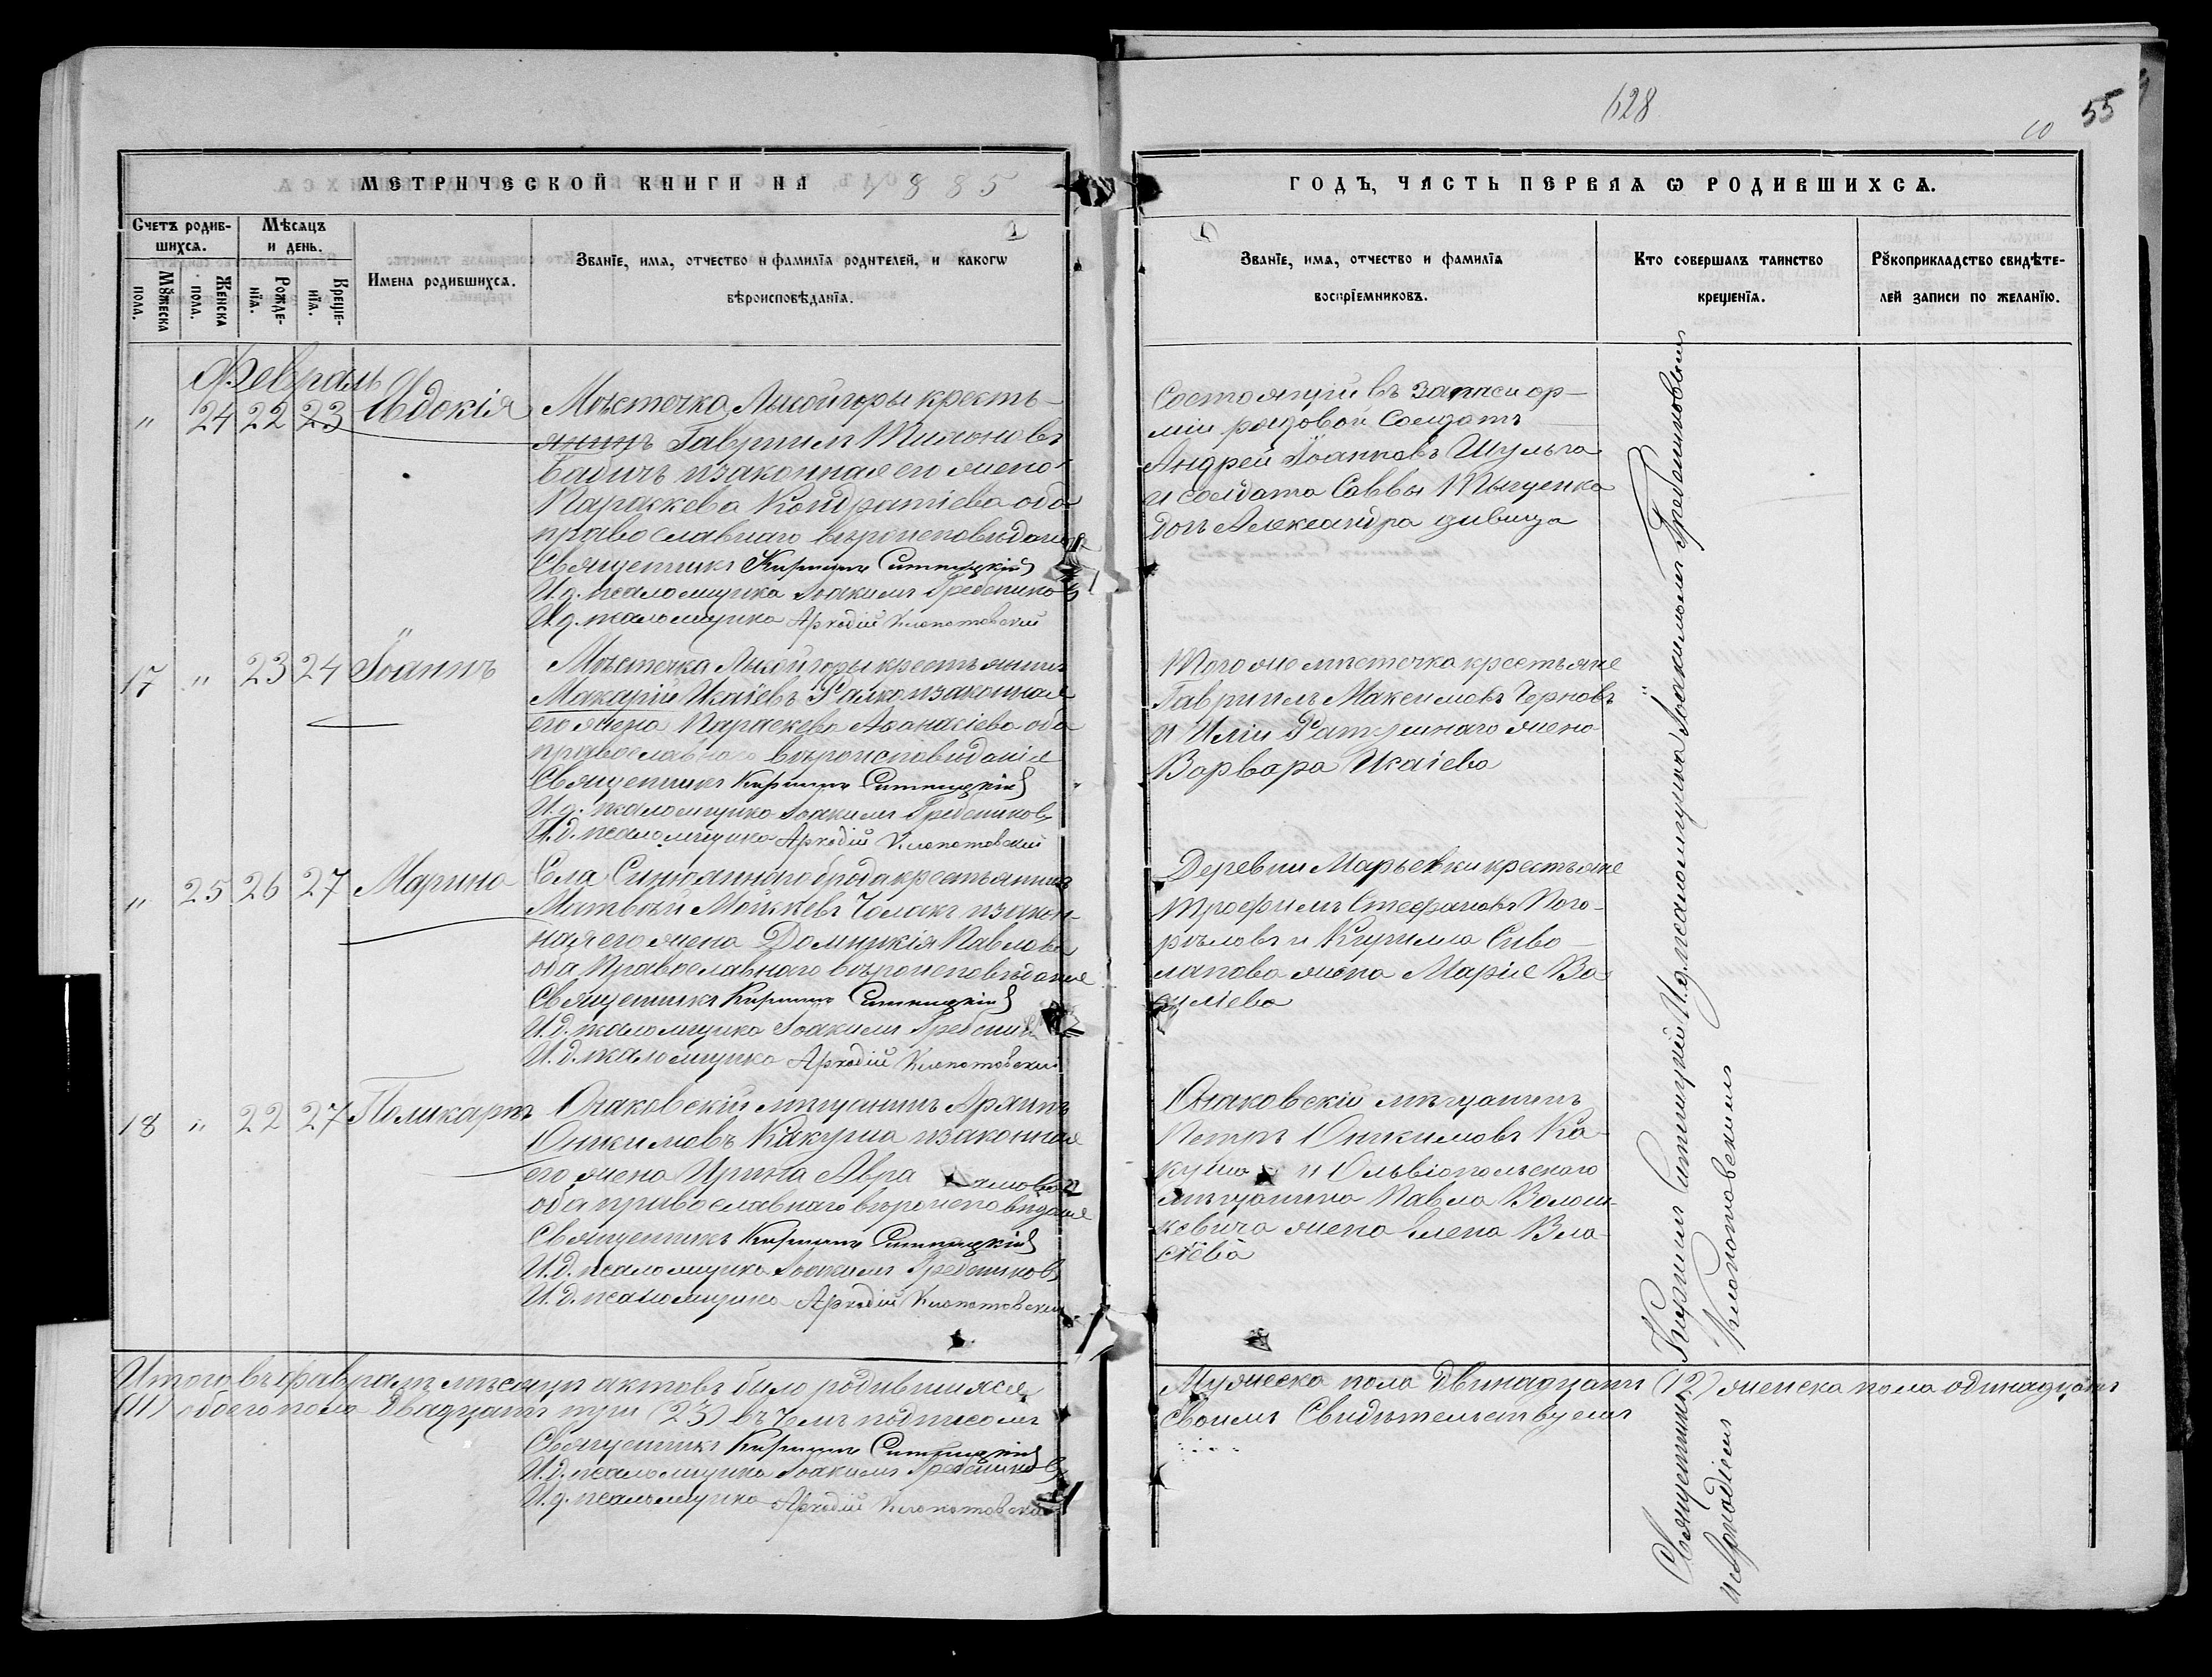 628
10 55
МЕТРИЧЕСКОЙ КНИГИ НА 1885
ГОДЪ, ЧАСТЬ ПЕРВАЯ Ѡ РОДИВШИХСѦ.
Счетъ родив-
шихсѧ.
Мѣсѧцъ
и день.
Мꙋжеска
пола.
Женска
пола.
Рожде-
нїѧ.
Креще-
нїѧ.
Имена родившихсѧ.
Званїе, имѧ, отчество и фамилїѧ родителей, и какогѡ
вѣроисповѣданїѧ.
Званїе, имѧ, отчество и фамилїѧ
воспрїемниковъ.
Кто совершалъ таинство
крещенїѧ.
Рꙋкоприкладство свидѣте-
лей записи по желанїю.
Февраль
" 24 22 23 Евдокія
Мѣстечка Лысойгоры кресть-
янинъ Гавріилъ Тихоновъ
Бабичъ изаконная его жена
Параскева Кондратіева оба
православнаго вѣроисповѣданія
Священникъ Кириллъ Ситницкій
И.д. псаломщика Іоакимъ Гребенниковъ
И.д. псаломщика Аркадій Клопотовскій
Состоящій въ запаси ар-
міи рядовой Солдатъ
Андрей Іоанновъ Шульга
и солдата Саввы
дочь Александра дивица
17 " 23 24 Іоаннъ
Мѣстечка Лысойгоры крестьянинъ
Макарій Исаіевъ Райко изаконная
его жена Параскева Аѳанасіева оба
православнаго вѣроисповѣданія
Священникъ Кириллъ Ситницкій
И.д. псаломщика Іоакимъ Гребенниковъ
И.д. псаломщика Аркадій Клопотовскій
Того же мѣстечка крестьяне
Гавріилъ Максимовъ Черновъ
и Иліи жена
Варвара Исаіева
" 25 26 27 Марина
Села Синюхинаго брода крестьянинъ
Матвѣй Чолакъ изакон-
ная его жена Домникія Павлова
оба Православнаго вѣроисповѣданія
Священникъ Кириллъ Ситницкій
И.д. псаломщика Іоакимъ Гребенниковъ
И.д. псаломщика Аркадій Клопотовскій
Деревни Марьевки крестьяне
Трофимъ Стефановъ Пого-
рѣловъ и Кирилла Сиво-
лапова жена Марія Ва-
силіева
18 " 22 27 Поликарпъ
Очаковскій мѣщанинъ Архипъ
Онисимовъ Какуша изаконная
его жена Ирина Авра амова
оба православнаго вѣроисповѣданія
Священникъ Кириллъ Ситницкій
И.д. псаломщика Іоакимъ Гребенниковъ
И.д. псаломщика Аркадій Клопотовскій
Очаковскій мѣщанинъ
Петръ Онисимовъ Ка-
куша и Ольвіопольскаго
мѣщанина Павла Волош-
кевича жена Елена Вла-
сіева
Священникъ Кириллъ Ситницкій И.д. псаломщика Іоакимомъ Гребенниковымъ
и Аркадіемъ Клопотовскимъ
Итого въ февралѣ мѣсяцѣ актовъ было родившихся
Мужеска пола Двинадцать (12) женска пола одинадцать
(11) обоего пола Двадцать три (23) въ чемъ подписомъ
своимъ Свидѣтельствуемъ
Священникъ Кириллъ Ситницкій
И.д. псаломщика Іоакимъ Гребенниковъ
И.д. псаломщика Аркадій Клопотовскій